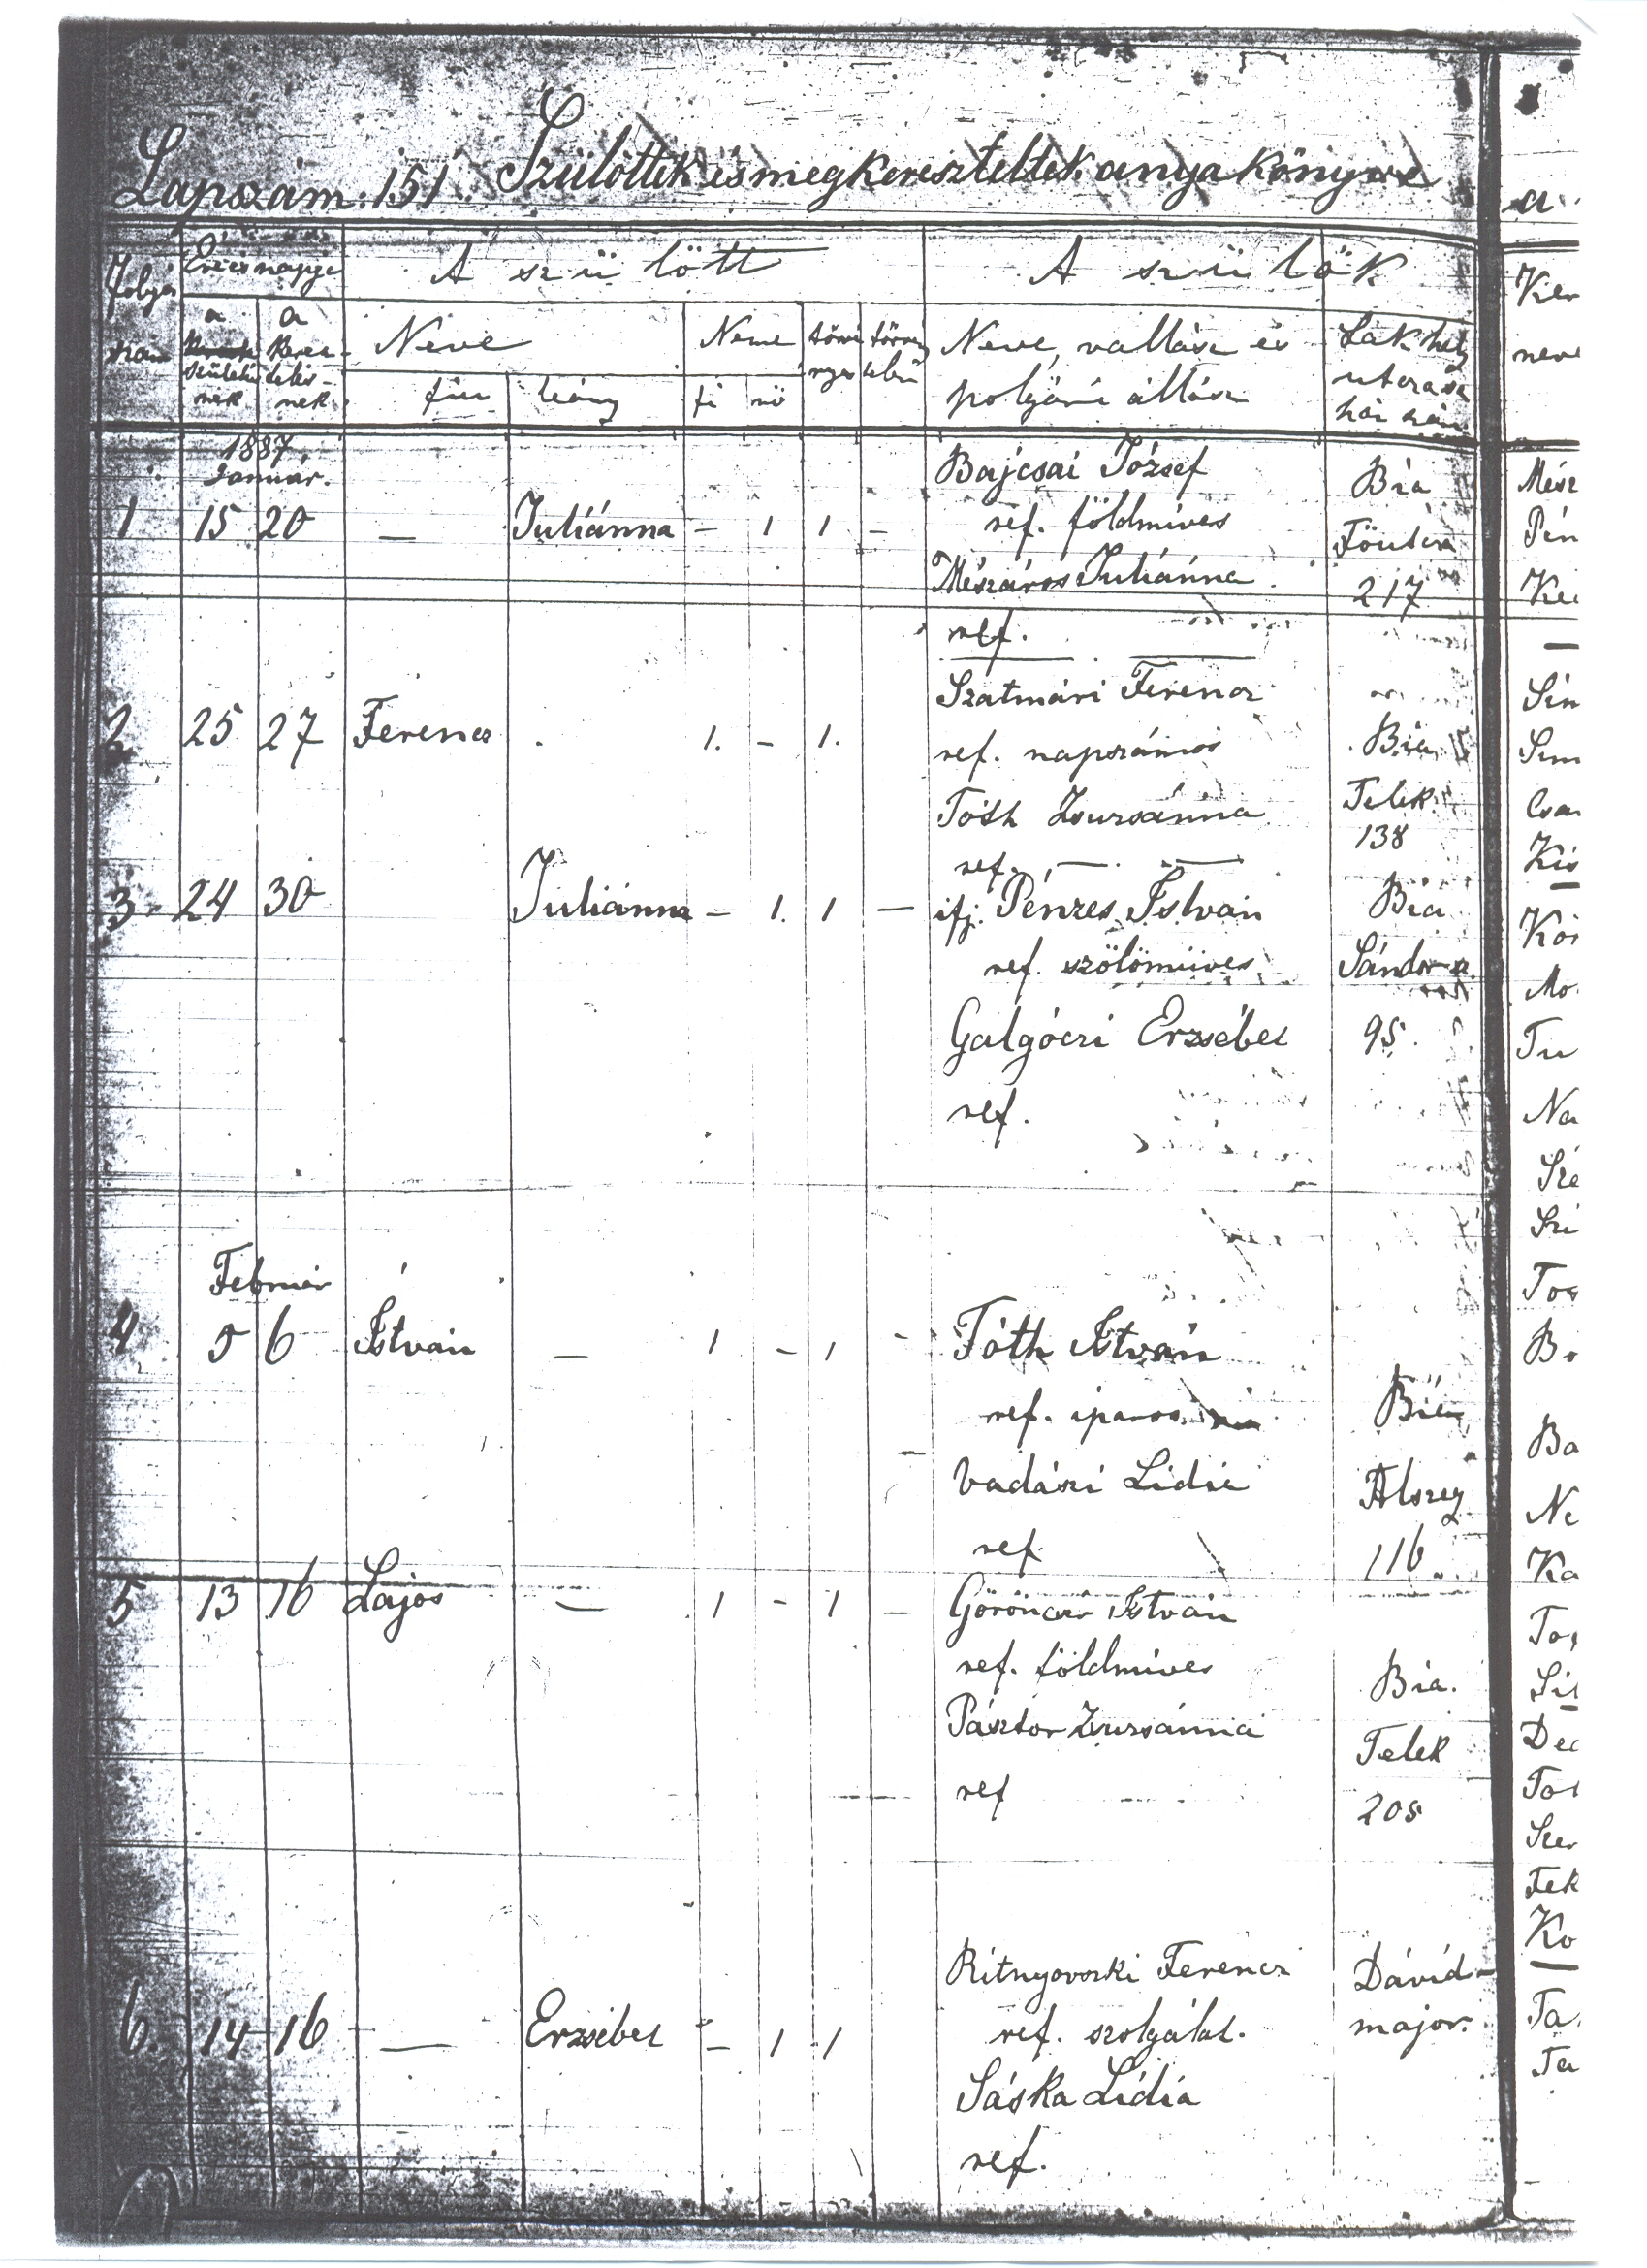 Lapszám: 151 Szülöttek és megkereszteltek anyakönyve
Folyó szám
Év és napja
A szülött
A szülők
a születésnek
a keresztelésnek
Neve
Neme
törvényes
törvénytelen
Neve, vallása és polgári állása
Lakhely utcza és ház szám
fiu
leány
fi
nő
1887
Január.
1 15 20 — Juliánna – 1 1 –
Bajcsai József
ref. földmíves
Mészáros Juliánna
ref.
Bia
Főutcza
217
2 25 27 Ferencz . 1. – 1.
Szatmári Ferencz
ref. napszámos
Tóth Zsuzsánna
ref. — —
Bia
Telek
138
3. 24 30 Juliánna – 1. 1 —
ifj. Pénzes István
ref. szőlőműves
Galgóczi Erzsébet
ref.
Bia
Sándor u.
95.
Február
4 5 6 István — 1 – 1 –
Tóth István
ref. iparos
Vadászi Lidia
ref
Bia
Alszeg
116.
5 13 16 Lajos — 1 – 1 –
Göröncsér István
ref. földmíves
Pásztor Zsuzsánna
ref
Bia.
Telek
205
6. 14 16 — Erzsébet – 1 1
Ritnyovszki Ferencz
ref. szolgálat.
Sáska Lidia
ref.
Dávid-
major.